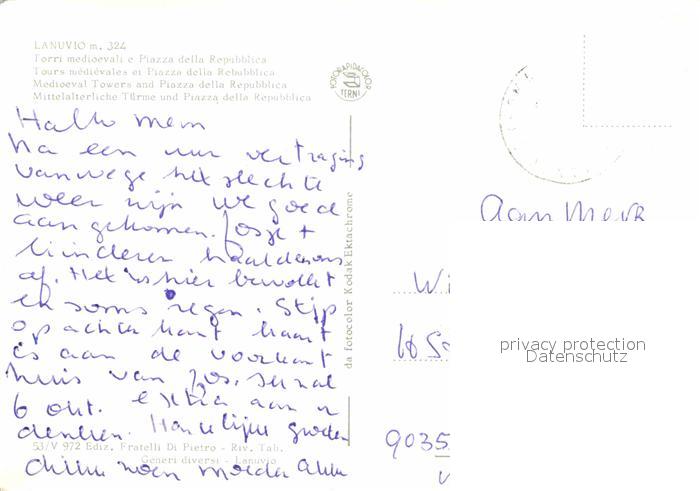 LANUVIO m. 324
Torri medioevali e Piazza della Repubblica
Tours médiévales et Piazza della Rebubblica
Medioeval Towers and Piazza della Repubblica
Mittelalterliche Türme und Piazza della Repubblica
FOTORAPIDACOLOR
TERNI
da fotocolor Kodak Ektachrome
Hallo Mem
Na een uur vertraging
vanwege het slechte
weer zijn we goed
aangekomen. Josje +
kinderen haalden ons
af. Het is hier bewolkt
en soms regen. Stip
op achter kant kaart
is aan de voorkant
huis van Jos.
6 okt. aan
denken. Hartelijke groeten
53/V 972 Ediz. Fratelli Di Pietro - Riv. Tab.
Generi diversi - Lanuvio
Aan Mevr
Wi
privacy protection
Datenschutz
9035